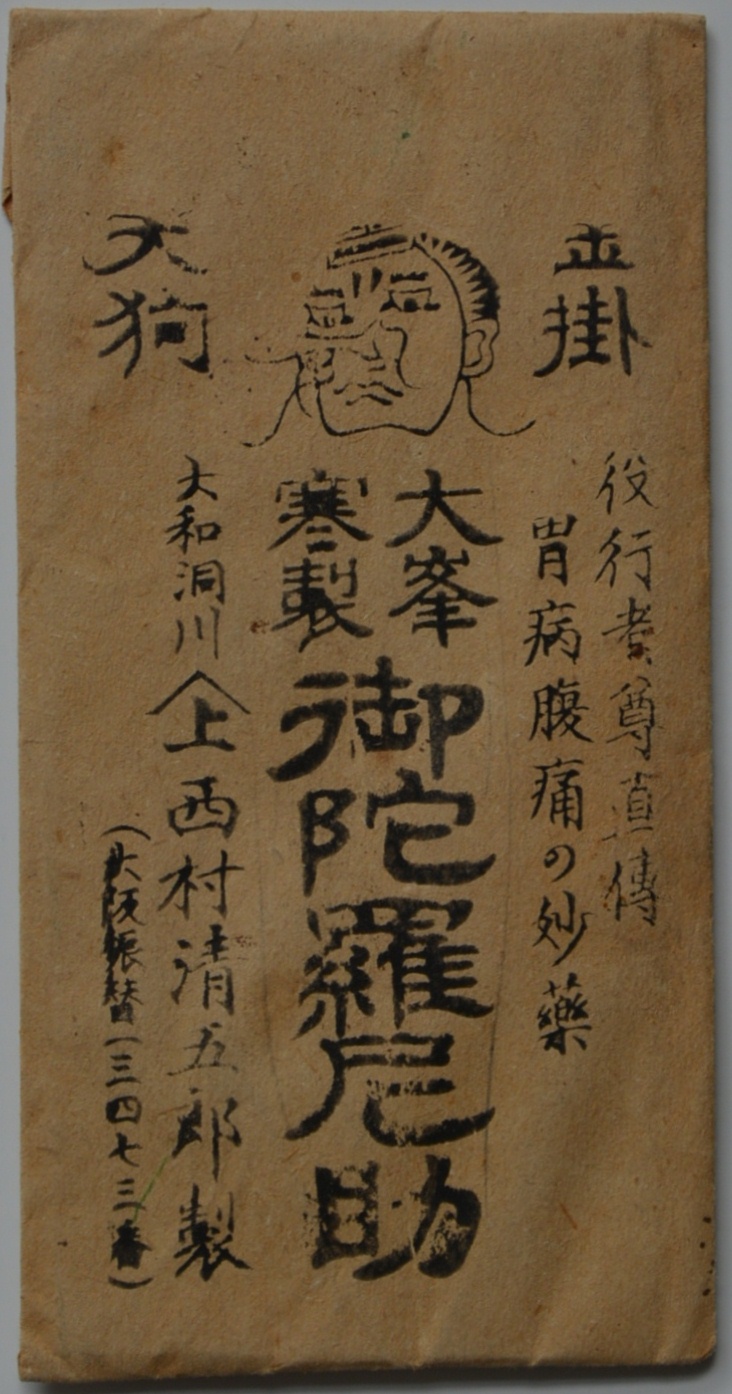 正掛
役行者尊直傳
胃病腹痛の妙薬
大峯
寒製
御陀羅尼助
天狗
大和洞川 上 西村清五郎製
(大阪振替一三四七三番)